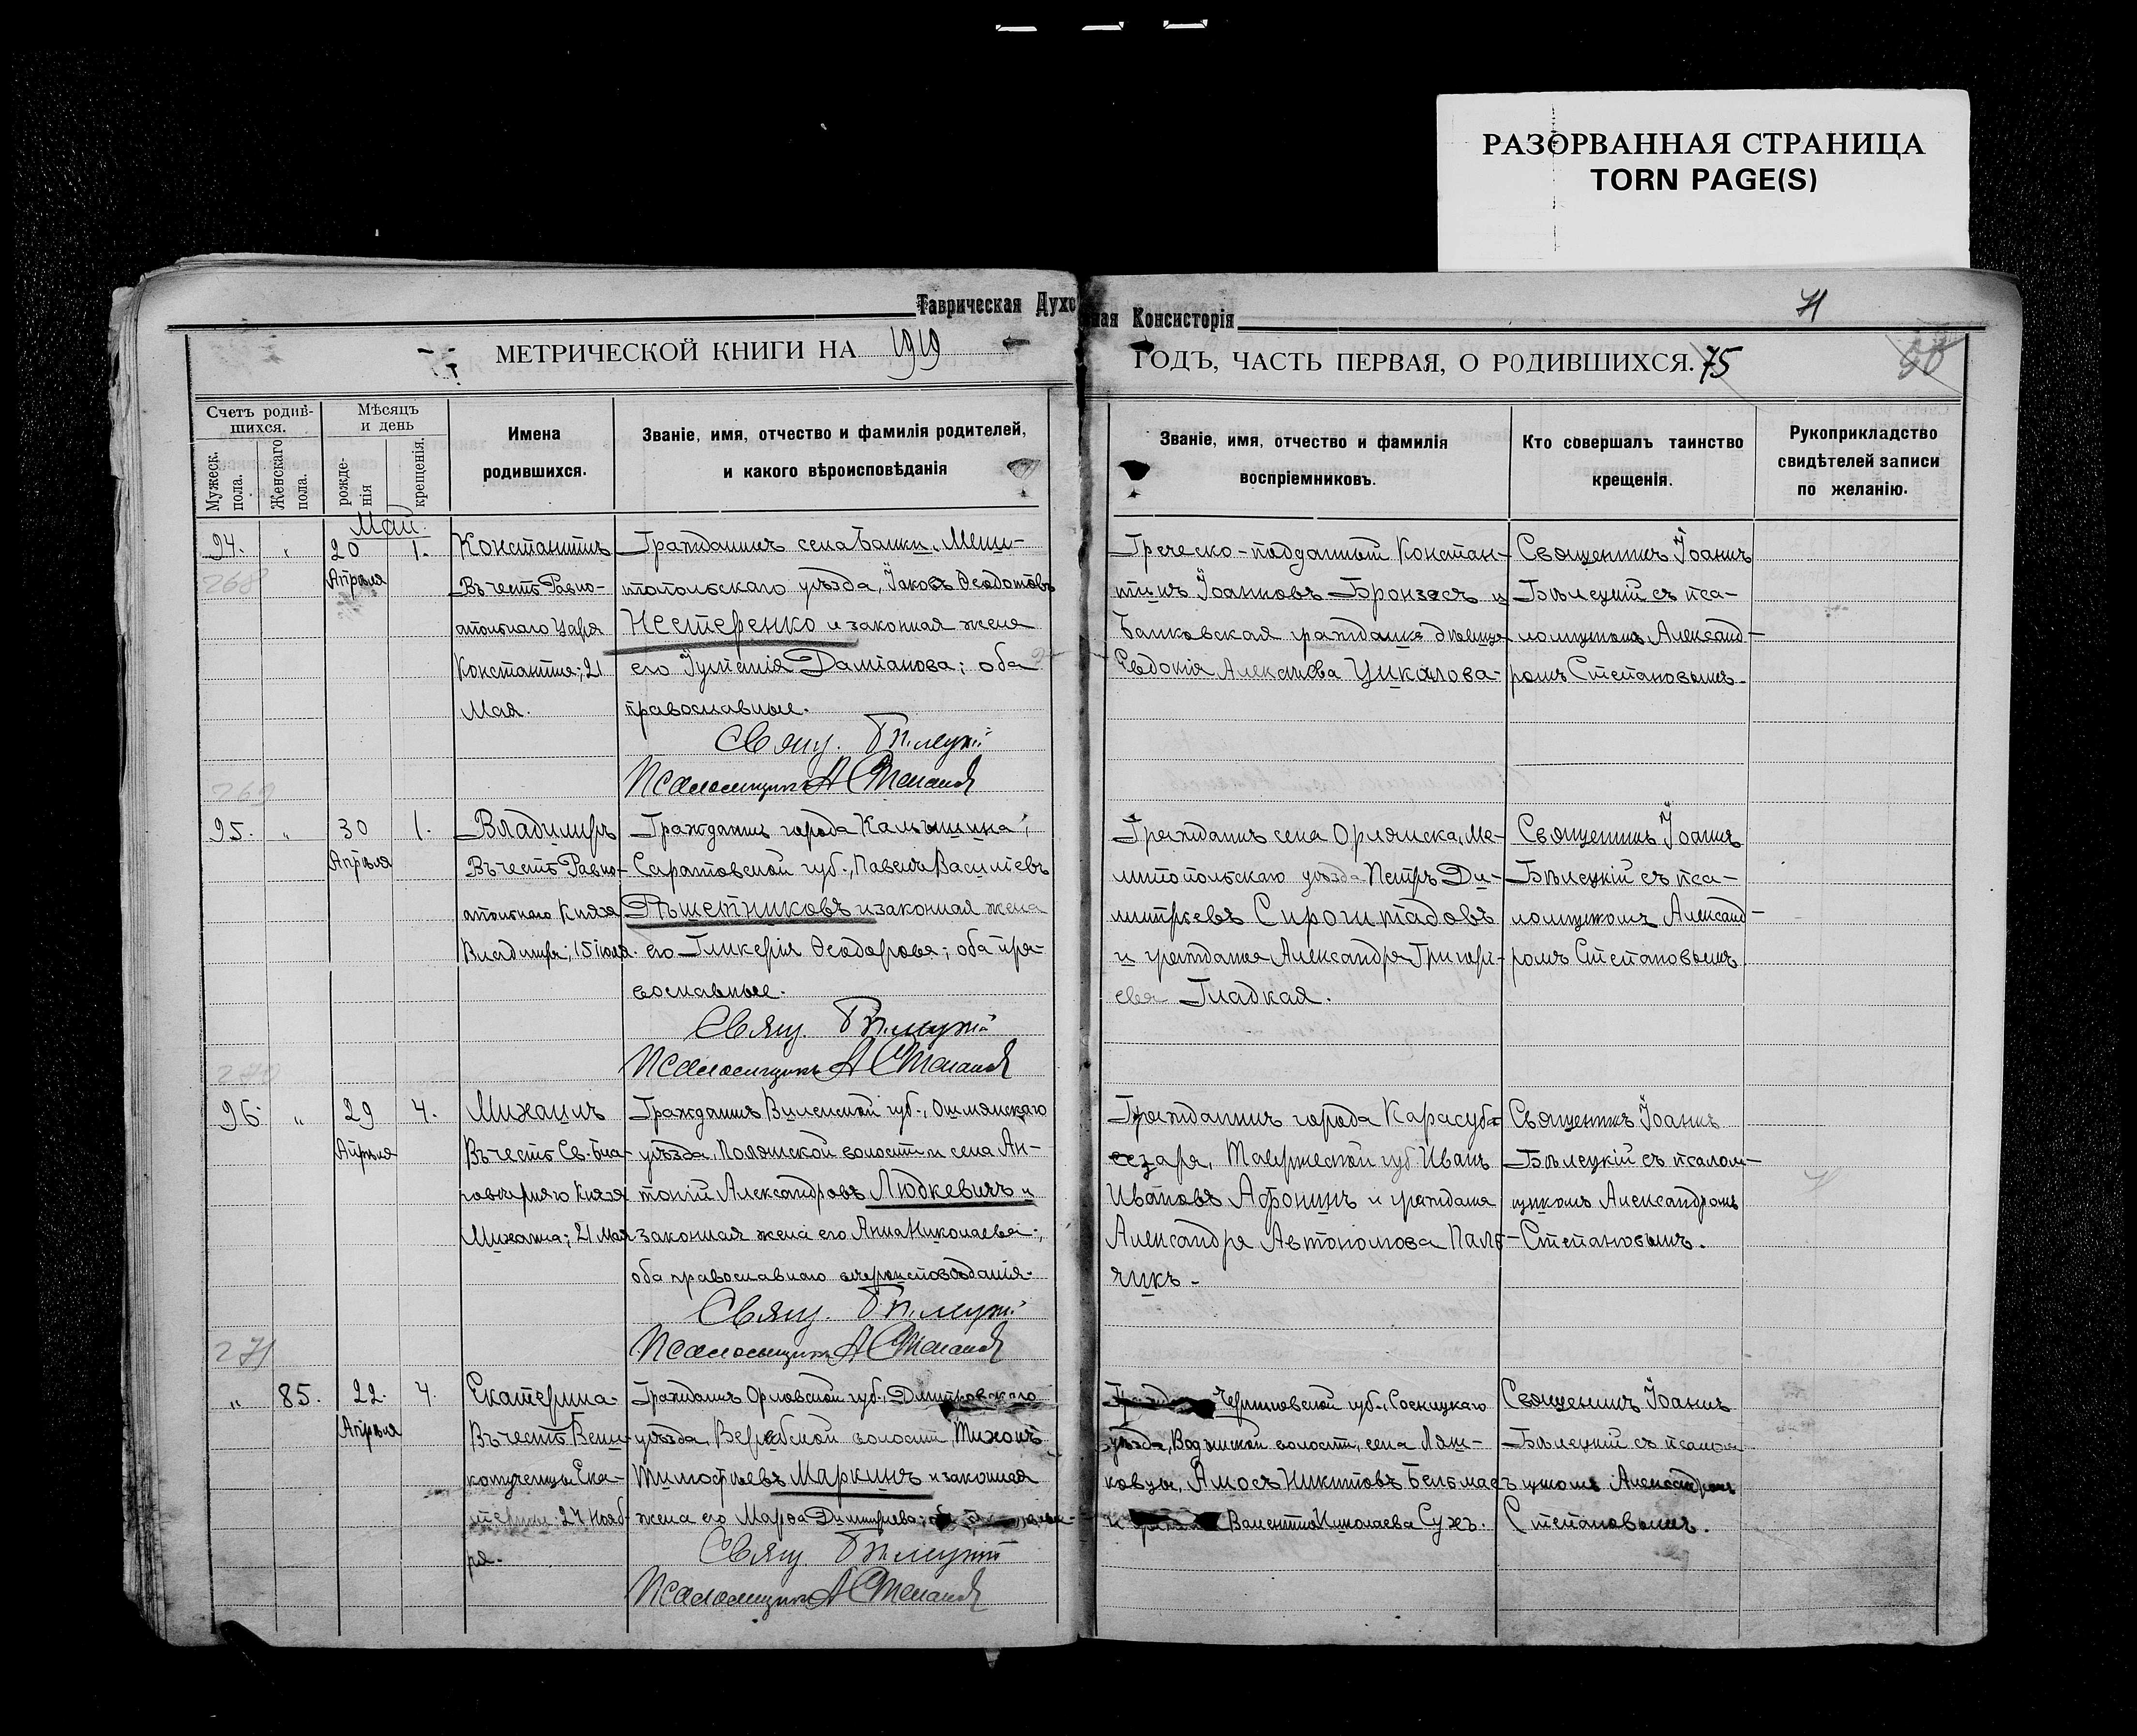 РАЗОРВАННАЯ СТРАНИЦА
TORN PAGE(S)
Таврическая Духо
ная Консисторія
71
МЕТРИЧЕСКОЙ КНИГИ НА 1919
ГОДЪ, ЧАСТЬ ПЕРВАЯ, О РОДИВШИХСЯ. 75
Счетъ родив-
шихся.
Мужеск.
пола.
Женскаго
пола.
Мѣсяцъ
и день
рожде-
нія
крещенія.
Имена
родившихся.
Званіе, имя, отчество и фамилія родителей,
и какого вѣроисповѣданія
Званіе, имя, отчество и фамилія
воспріемниковъ.
Кто совершалъ таинство
крещенія.
Рукоприкладство
свидѣтелей записи
по желанію.
Май.
94. „ 20 1.
Апрѣля
268
Константинъ
Въ честь Равно-
апостольнаго Царя
Константина; 21
Мая.
Гражданинъ села Балки, Мели-
топольскаго уѣзда, Іаковъ Ѳеодотовъ
Нестеренко и законная жена
его Іулианія Даміанова; оба
православные.
Свящ. Бѣлецкій
Псаломщикъ А Степановъ
Греческо-подданный Констан-
тинъ Іоанновъ Бронзесъ и
Балковская гражданка дѣвица
Евдокія Алексѣева Цикалова-
Священникъ Іоаннъ
Бѣлецкій съ пса-
ломщикомъ Александ-
ромъ Степановымъ.
269
95. „ 30 1.
Апрѣля
Владимиръ
Въ честь Равно-
апостольнаго Князя
Владимира; 15 іюля.
Гражданинъ города Камышина,
Саратовской губ., Павелъ Васильевъ
Рѣшетниковъ и законная жена
его Гликерія Ѳеодорова; оба пра-
вославные.
Свящ. Бѣлецкій
Псаломщикъ А Степановъ
Гражданинъ села Орлянска, Ме-
литопольскаго уѣзда Петръ Ди-
митріевъ
и гражданка Александра Григорі-
ева Гладкая.
Священникъ Іоаннъ
Бѣлецкій съ пса-
ломщикомъ Александ-
ромъ Степановымъ
270
96. „ 29 4.
Апрѣля
Михаилъ
Въ честь Св. Бла-
говѣрнаго Князя
Михаила; 21 Мая
Гражданинъ Виленской губ., Ошмянскаго
уѣзда, Полянской волости и села Ан-
тоній Александровъ Людкевичъ и
законная жена его Анна Николаева;
оба православнаго вѣроисповѣданія.
Свящ. Бѣлецкій
Псаломщикъ А Степановъ
Гражданинъ города Карасуба-
зара, Таврической губ. Иванъ
Ивановъ Афонинъ и гражданка
Александра Автономова Паль-
чикъ.
Священникъ Іоаннъ
Бѣлецкій съ псалом-
щикомъ Александромъ
Степановымъ.
271
„ 85. 22. 4.
Апрѣля
Екатерина.
Въ честь Вели-
комученицы Ека-
терины. 24 Нояб-
ря.
Гражданинъ Орловской губ., Дмитровскаго
уѣзда, Веребской волости, Тихонъ
Тимофѣевъ Маркинъ и законная
жена его Марфа Димитріева;
Свящ Бѣлецкій
Псаломщикъ А Степановъ
Черниговской губ., Сосницкаго
уѣзда, волости, села Ляш-
ковцы, Амосъ Никитовъ Бельмасъ
и Валентина Николаева Сухъ.
Священникъ Іоаннъ
Бѣлецкій съ псалом
щикомъ Александромъ
Степановымъ.